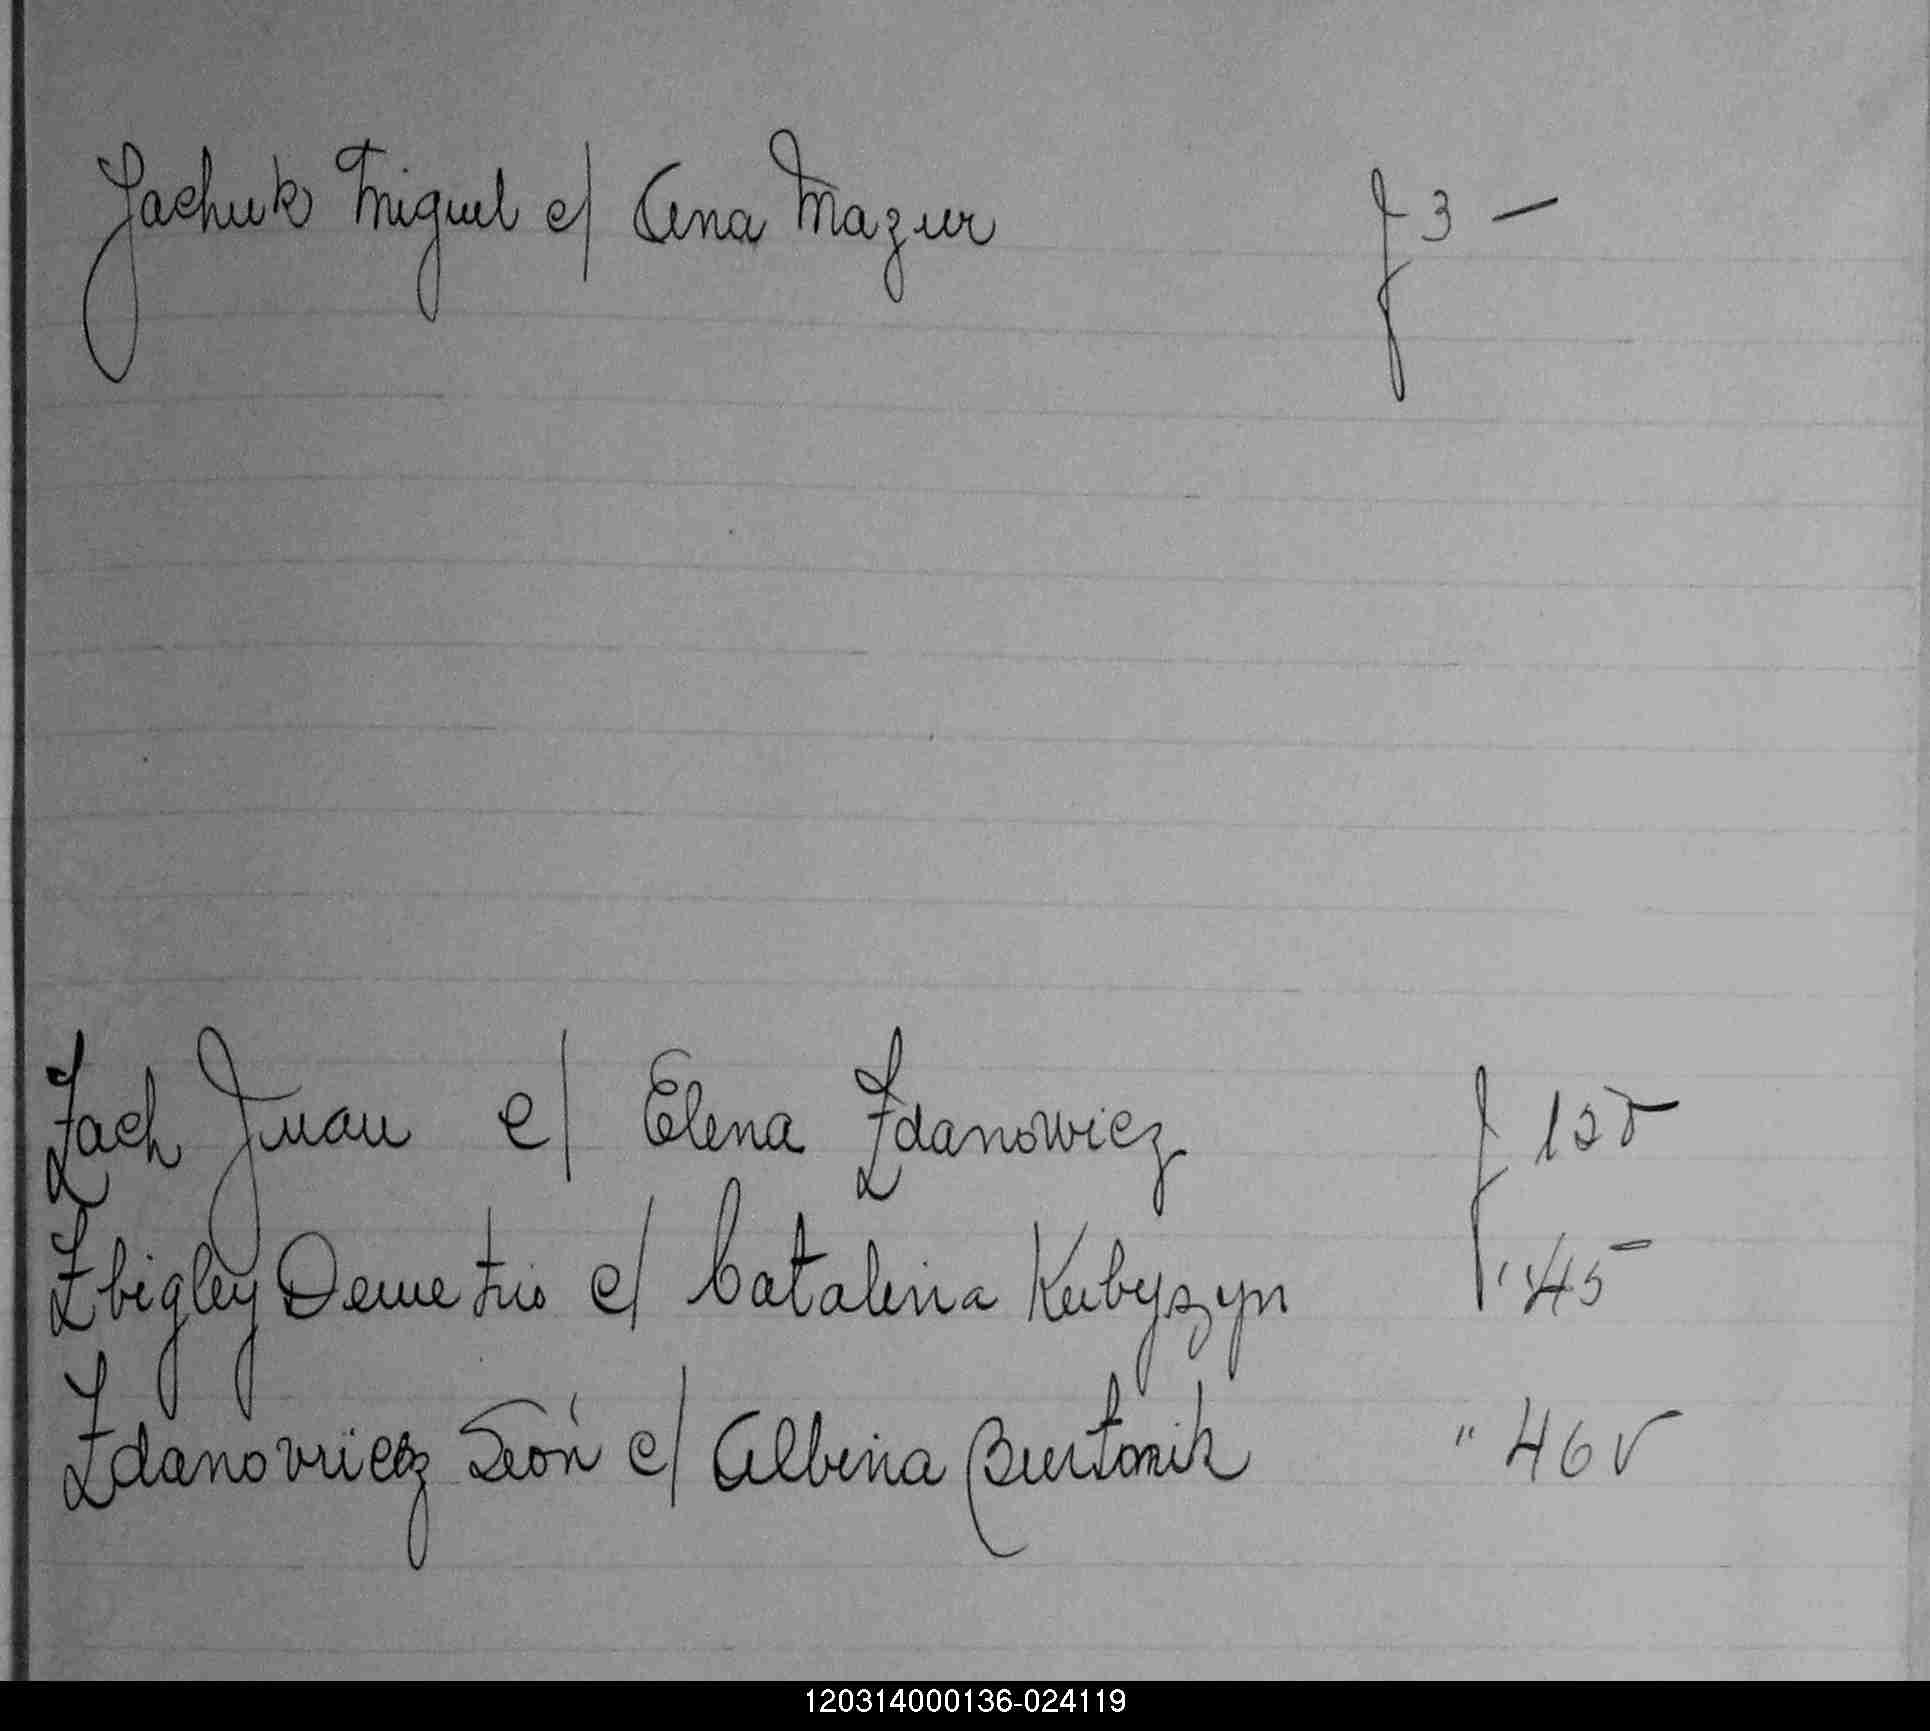 Jachuk Miguel c/ Ana Mazur f 3 —
Zach Juan c/ Elena Zdanowicz f 12 v
Zbigley Demetrio c/ Catalina Kubyszyn " 45 —
Zdanowicz León c/ Albina Burtonik " 46 v
120314000136-024119